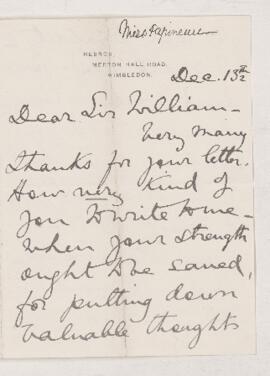 Miss Papineau
HEBRON,
MERTON HALL ROAD,
WIMBLEDON.
Dec. 13th
Dear Sir William –
Very many
thanks for your letter.
How very kind of
you to write to me –
when your strength
ought to be saved,
for putting down
valuable thoughts